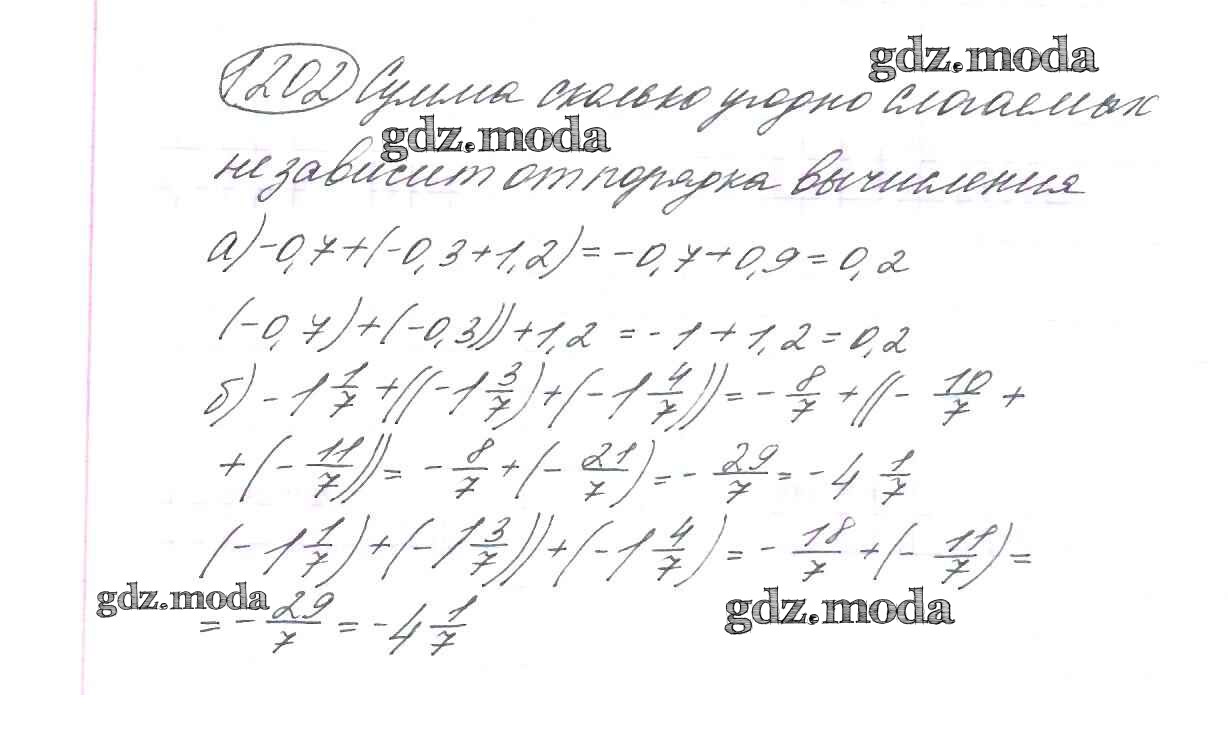 gdz.moda
1202 Сумма сколько угодно слагаемых
gdz.moda
не зависит от порядка вычисления
а) -0,7+(-0,3+1,2)=-0,7+0,9=0,2
(-0,7)+(-0,3))+1,2=-1+1,2=0,2
б) -1 1/7 +((-1 3/7)+(-1 4/7))=- 8/7 +((- 10/7 +
+(- 11/7))= - 8/7 +(- 21/7)=- 29/7 = -4 1/7
(-1 1/7)+(-1 3/7))+(-1 4/7)=- 18/7 +(- 11/7)=
gdz.moda gdz.moda
= - 29/7 = -4 1/7